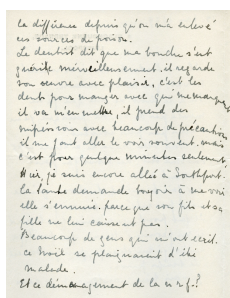 la différence depuis qu'on m'a enlevé
ces sources de poison.
Le dentist dit que ma bouche s'est
guérite merveilleusement. il regarde
son œuvre avec plaisir, c'est les
dents pour manger avec qui me manquent
il va m'en mettre, il prend des
 avec beaucoup de précautions
il me faut aller le voir souvent, mais
c'est pour quelques minutes seulement,
Hier, je suis encore allée à Southport.
la tante demande toujours à me voir
elle s'ennuie. parce que son fils et sa
fille ne lui causent pas.
Beaucoup de gens qui m'ont écrit.
ce Noël se plaignaient d'être
malade.
Et ce déménagement de la n r f.?